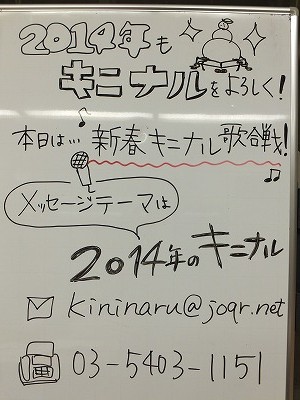 2014年も
キニナルをよろしく!
本日は… 新春キニナル歌合戦!
メッセージテーマは
2014年のキニナル
kininaru@joqr.net
03-5403-1151